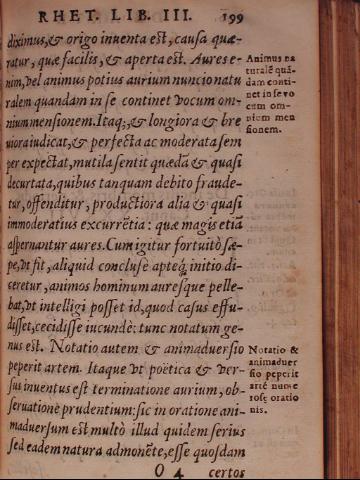 RHET. LIB. III. 199
diximus, & origo inuenta est, causa quæ-
ratur, quæ facilis, & aperta est. Aures e-
nim, vel animus potius aurium nuncio natu
ralem quandam in se continet vocum om-
nium mensionem. Itaq;, & longiora & bre
uiora iudicat, & perfecta ac moderata sem
per expectat, mutila sentit quædã & quasi
decurtata, quibus tanquam debito fraude-
tur, offenditur, productiora alia & quasi
immoderatius excurrẽtia: quæ magis etiã
aspernantur aures. Cum igitur fortuitò sæ-
pe, vt fit, aliquid concluse apteq́; initio di-
ceretur, animos hominum auresque pelle-
bat, vt intelligi posset id, quod casus effu-
disset, cecidisse iucundè: tunc notatum ge-
nus est. Notatio autem & animaduersio
peperit artem. Itaque vt poëtica & ver-
sus inuentus est terminatione aurium, ob-
seruatione prudentium: sic in oratione ani-
maduersum est multò illud quidem serius
sed eadem natura admonẽte, esse quosdam
O 4 certos
Animus na
turalẽ quã-
dam conti-
net in se vo
cum om-
nium men
sionem.
Notatio &
animaduer
sio peperit
artẽ nume
rosę oratio
nis.